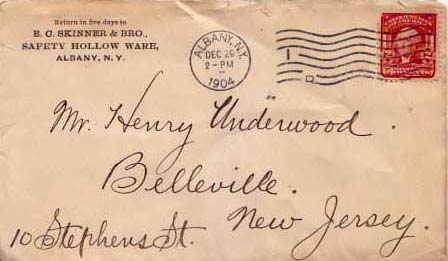 Return in five days to
E. C. SKINNER & BRO.,
SAFETY HOLLOW WARE,
ALBANY, N.Y.
ALBANY, N.Y.
DEC 26
2-PM
1904
Mr. Henry Underwood.
Belleville.
New Jersey.
10 Stephens St.